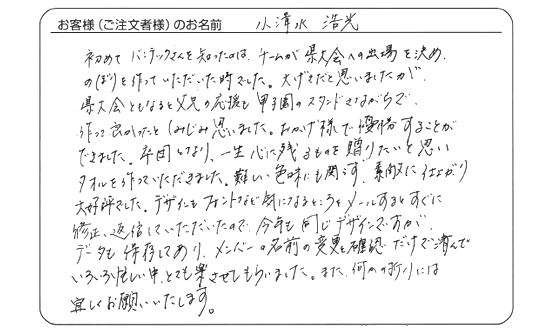 お客様（ご注文者様）のお名前 小清水 浩光
初めてバンテックさんを知ったのは、チームが県大会への出場を決め、
のぼりを作っていただいた時でした。大げさだと思いましたが、
県大会ともなると父兄の応援も甲子園のスタンドさながらで、
作って良かったとしみじみ思いました。おかげ様で優勝することが
できました。卒団となり、一生心に残るものを贈りたいと思い
タオルを作っていただきました。難しい色味にも関らず、素敵に仕上がり
大好評でした。デザインもフォントなど気になるところをメールするとすぐに
修正、返信していただいたので、今年も同じデザインですが、
データも保存してあり、メンバーの名前の変更と確認だけで済んで
いろいろ忙しい中、とても楽させてもらいました。また、何かの折りには
宜しくお願いいたします。